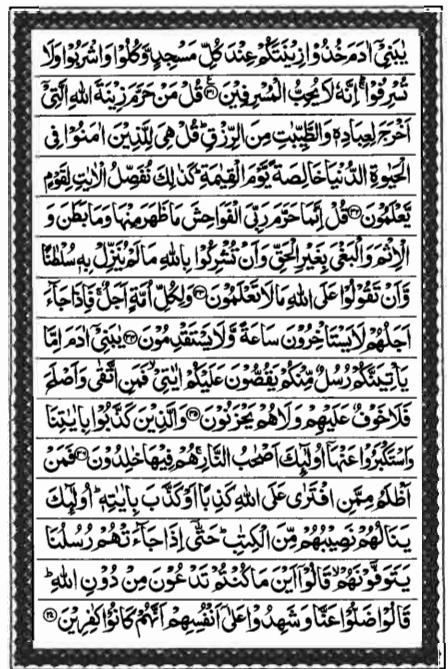 يٰبَنِيْٓ اٰدَمَ خُذُوْا زِيْنَتَكُمْ عِنْدَ كُلِّ مَسْجِدٍ وَّكُلُوْا وَاشْرَبُوْا وَلَا
تُسْرِفُوْا ۚ اِنَّهٗ لَا يُحِبُّ الْمُسْرِفِيْنَ ۝٣١ قُلْ مَنْ حَرَّمَ زِيْنَةَ اللّٰهِ الَّتِيْٓ
اَخْرَجَ لِعِبَادِهٖ وَالطَّيِّبٰتِ مِنَ الرِّزْقِ ؕ قُلْ هِيَ لِلَّذِيْنَ اٰمَنُوْا فِي
الْحَيٰوةِ الدُّنْيَا خَالِصَةً يَّوْمَ الْقِيٰمَةِ ؕ كَذٰلِكَ نُفَصِّلُ الْاٰيٰتِ لِقَوْمٍ
يَّعْلَمُوْنَ ۝٣٢ قُلْ اِنَّمَا حَرَّمَ رَبِّيَ الْفَوَاحِشَ مَا ظَهَرَ مِنْهَا وَمَا بَطَنَ وَ
الْاِثْمَ وَالْبَغْيَ بِغَيْرِ الْحَقِّ وَاَنْ تُشْرِكُوْا بِاللّٰهِ مَا لَمْ يُنَزِّلْ بِهٖ سُلْطٰنًا
وَّاَنْ تَقُوْلُوْا عَلَى اللّٰهِ مَا لَا تَعْلَمُوْنَ ۝٣٣ وَلِكُلِّ اُمَّةٍ اَجَلٌ ۚ فَاِذَا جَآءَ
اَجَلُهُمْ لَا يَسْتَاْخِرُوْنَ سَاعَةً وَّلَا يَسْتَقْدِمُوْنَ ۝٣٤ يٰبَنِيْٓ اٰدَمَ اِمَّا
يَاْتِيَنَّكُمْ رُسُلٌ مِّنْكُمْ يَقُصُّوْنَ عَلَيْكُمْ اٰيٰتِيْ ۙ فَمَنِ اتَّقٰى وَاَصْلَحَ
فَلَا خَوْفٌ عَلَيْهِمْ وَلَا هُمْ يَحْزَنُوْنَ ۝٣٥ وَالَّذِيْنَ كَذَّبُوْا بِاٰيٰتِنَا
وَاسْتَكْبَرُوْا عَنْهَآ اُولٰٓئِكَ اَصْحٰبُ النَّارِ ۚ هُمْ فِيْهَا خٰلِدُوْنَ ۝٣٦ فَمَنْ
اَظْلَمُ مِمَّنِ افْتَرٰى عَلَى اللّٰهِ كَذِبًا اَوْ كَذَّبَ بِاٰيٰتِهٖ ؕ اُولٰٓئِكَ
يَنَالُهُمْ نَصِيْبُهُمْ مِّنَ الْكِتٰبِ ؕ حَتّٰىٓ اِذَا جَآءَتْهُمْ رُسُلُنَا
يَتَوَفَّوْنَهُمْ ۙ قَالُوْٓا اَيْنَ مَا كُنْتُمْ تَدْعُوْنَ مِنْ دُوْنِ اللّٰهِ ؕ
قَالُوْا ضَلُّوْا عَنَّا وَشَهِدُوْا عَلٰٓى اَنْفُسِهِمْ اَنَّهُمْ كَانُوْا كٰفِرِيْنَ ۝٣٧